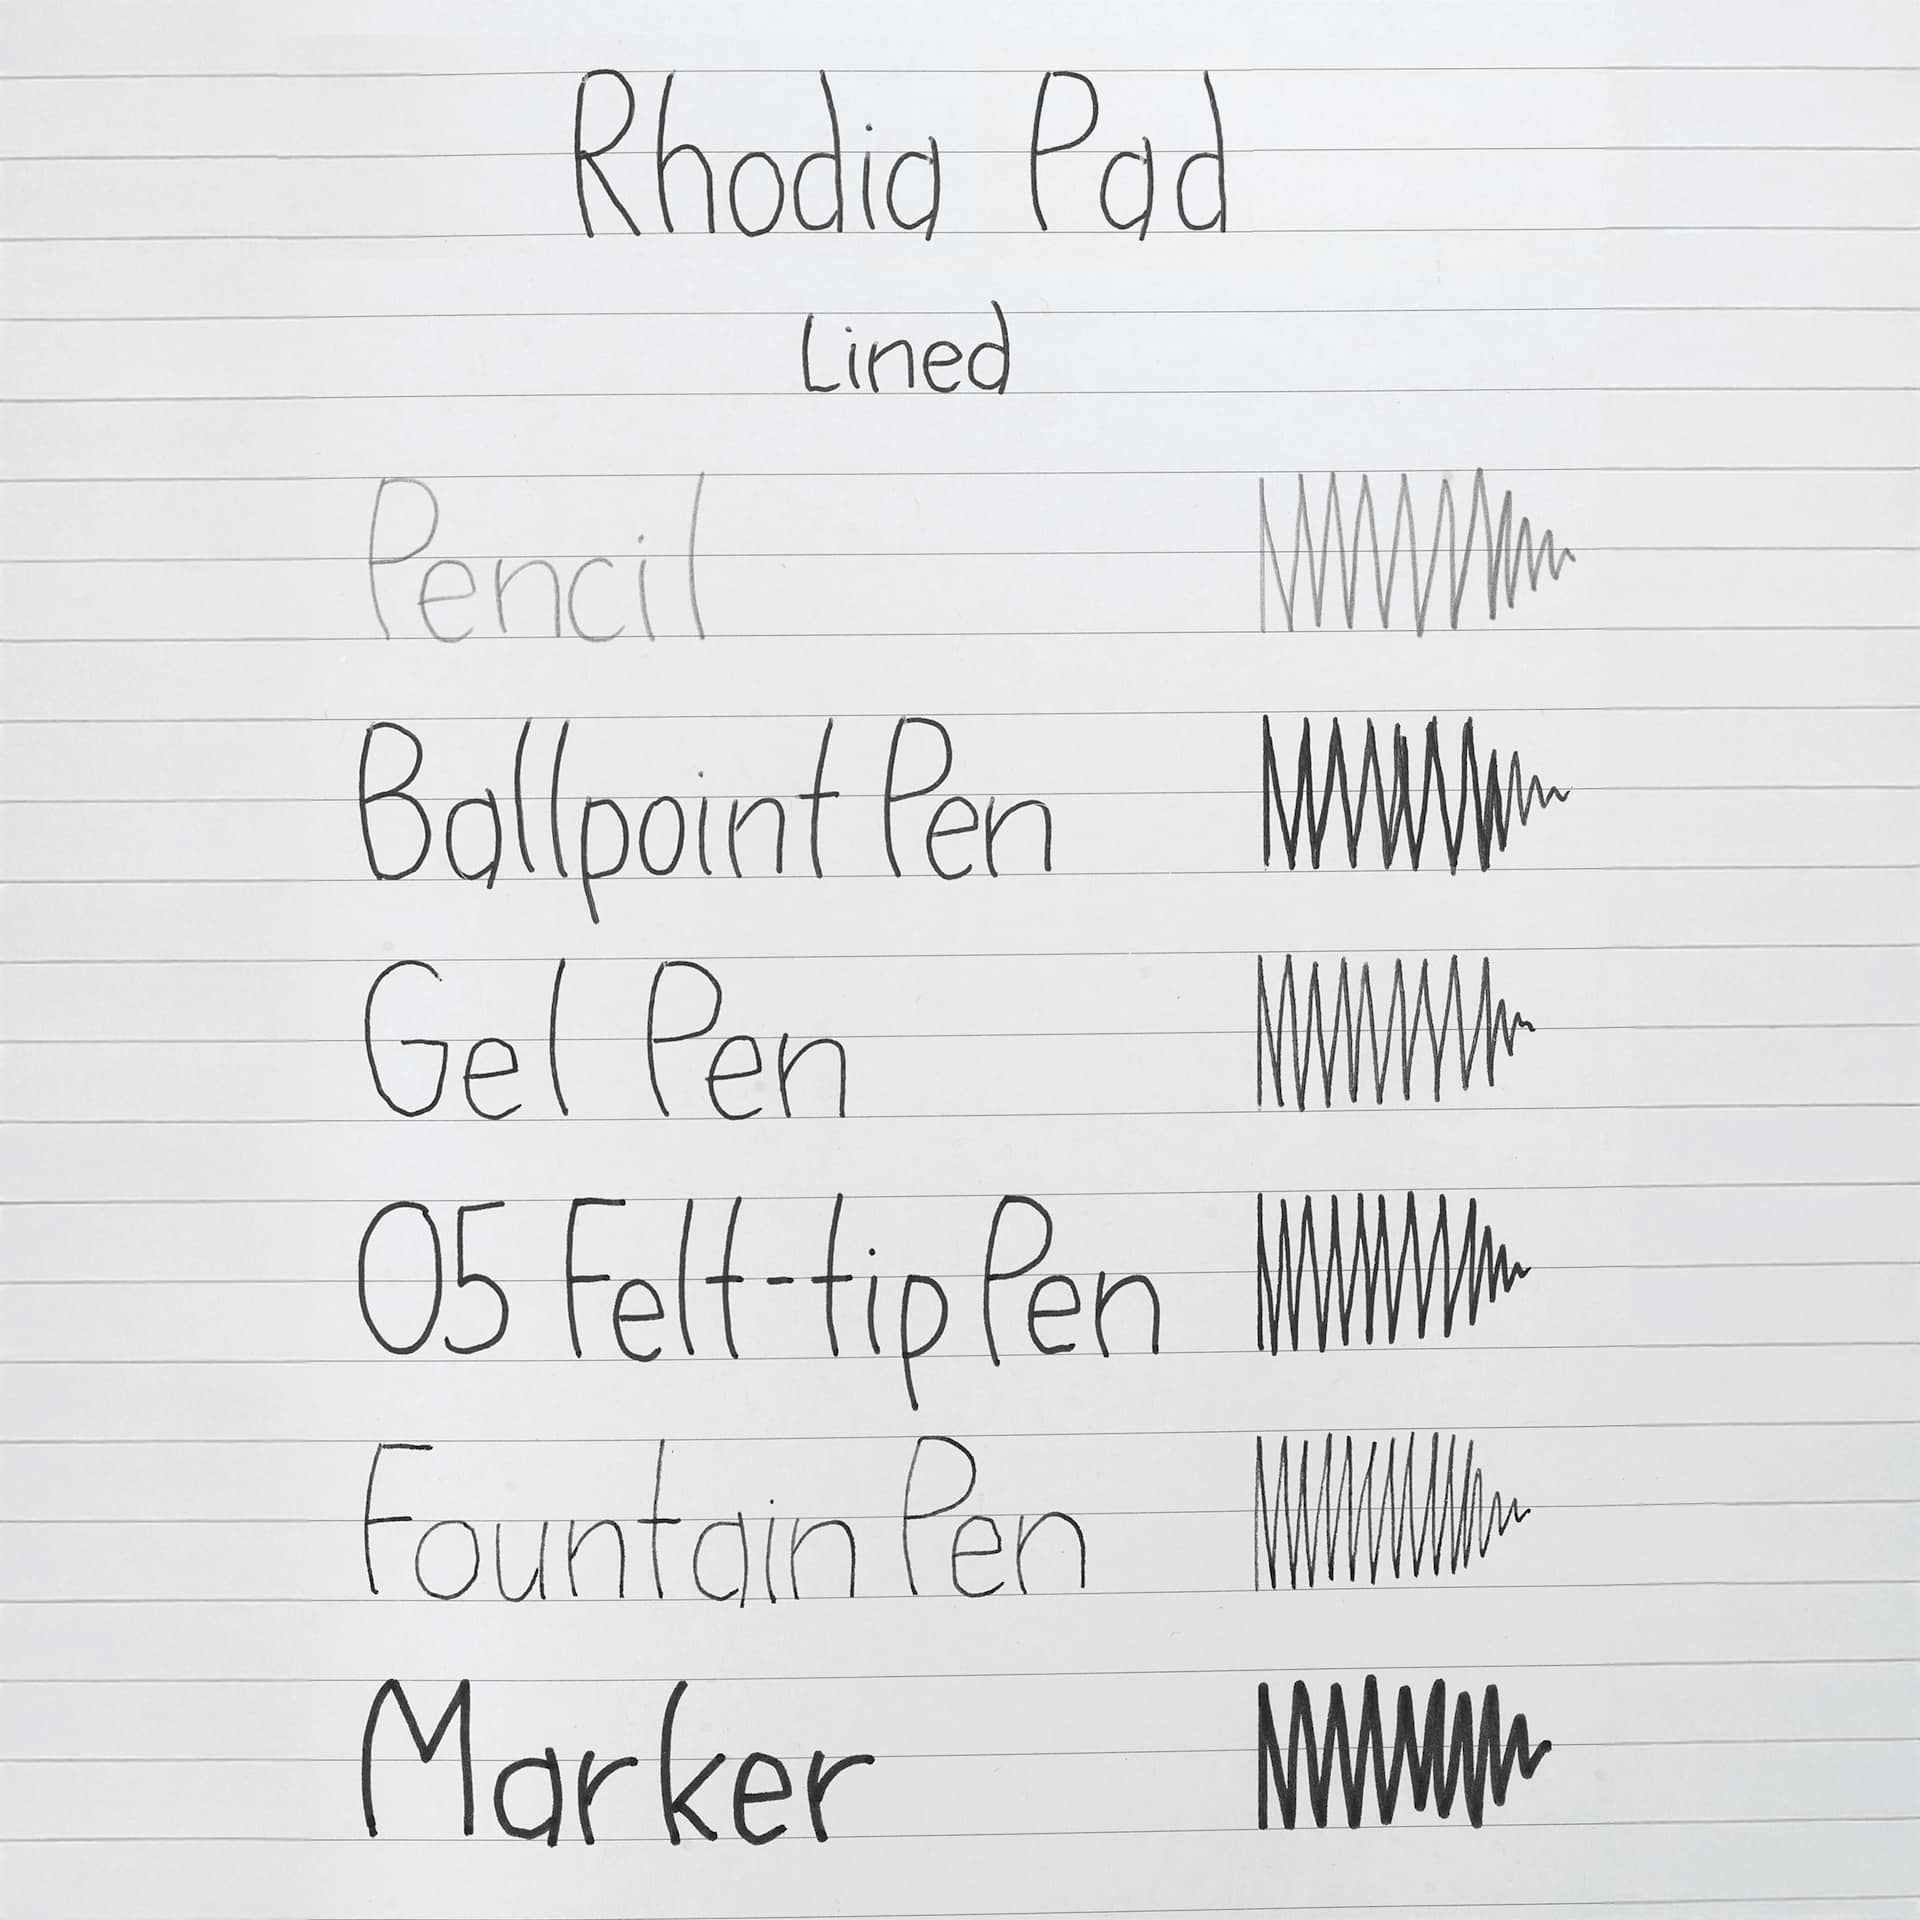 Rhodia Pad
Lined
Pencil
Ballpoint Pen
Gel Pen
05 Felt-tip Pen
Fountain Pen
Marker